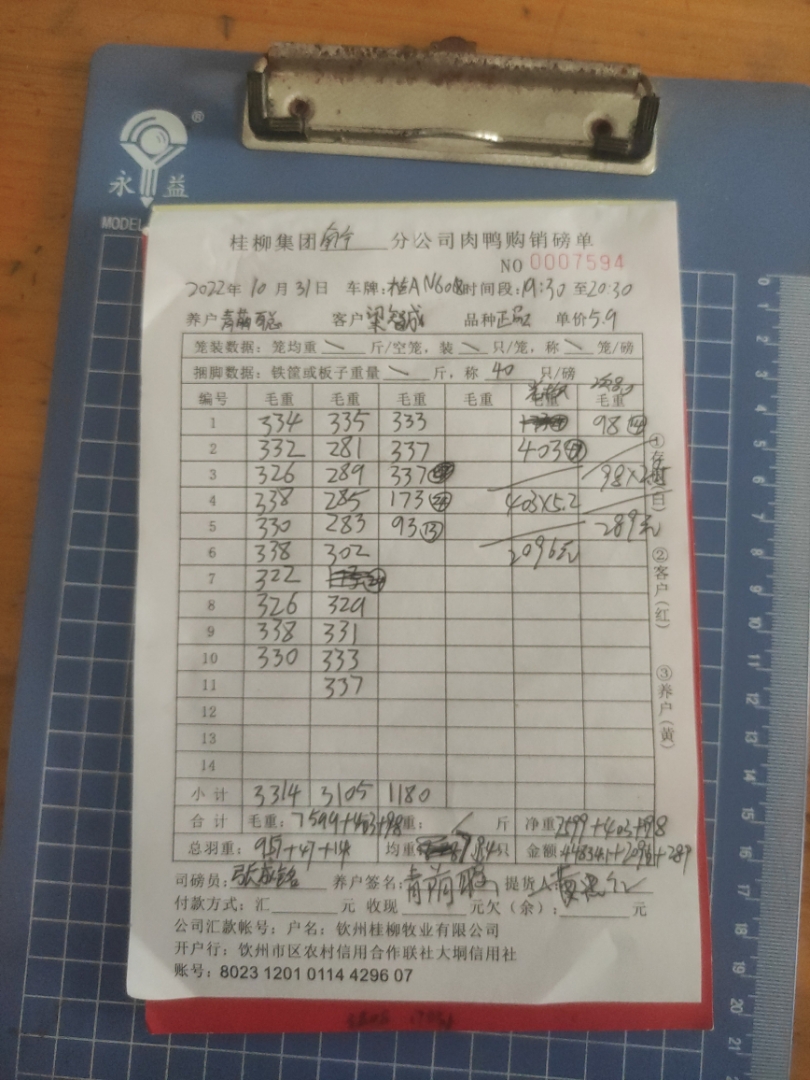 永益®
MODEL
桂柳集团 分公司肉鸭购销磅单
NO 0007594
2022年10月31日 车牌:桂AN608 时间段:19:30至20:30
养户 客户 梁智诚 品种 正品 单价5.9
笼装数据:笼均重 \ 斤/空笼,装 \ 只/笼,称 \ 笼/磅
捆脚数据:铁筐或板子重量 \ 斤,称 40 只/磅
编号 毛重 毛重 毛重 毛重 毛重 毛重
1 334 335 333 98
2 332 281 337 403
3 326 289 337
4 338 285 173 403×5.2
5 330 283 93⑬ 289元
6 338 302 2096元
7 322
8 326 329
9 338 331
10 330 333
11 337
12
13
14
小计 3314 3105 1180
合计 毛重:7599+403+98 重: / 斤 净重7599+403+98
总羽重:957+47+14 均重 7.84只 金额:44834.1+2096+289
司磅员: 养户签名: 提货人:
付款方式:汇 元 收现 元欠(余): 元
公司汇款帐号:户名:钦州桂柳牧业有限公司
开户行:钦州市区农村信用合作联社大垌信用社
账号:8023 1201 0114 4296 07
①存(白)
②客户(红)
③养户(黄)
0
1
2
3
4
5
6
7
8
9
10
11
12
13
14
15
16
17
18
19
20
21